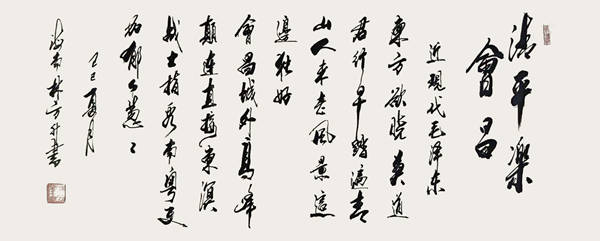 清平樂
會昌
近現代毛澤東
東方欲曉莫道
君行早踏遍青
山人未老風景這
邊獨好
會昌城外高峰
顛連直接東溟
戰士指看南粵更
加郁々葱々
乙巳夏月
海南林方升書